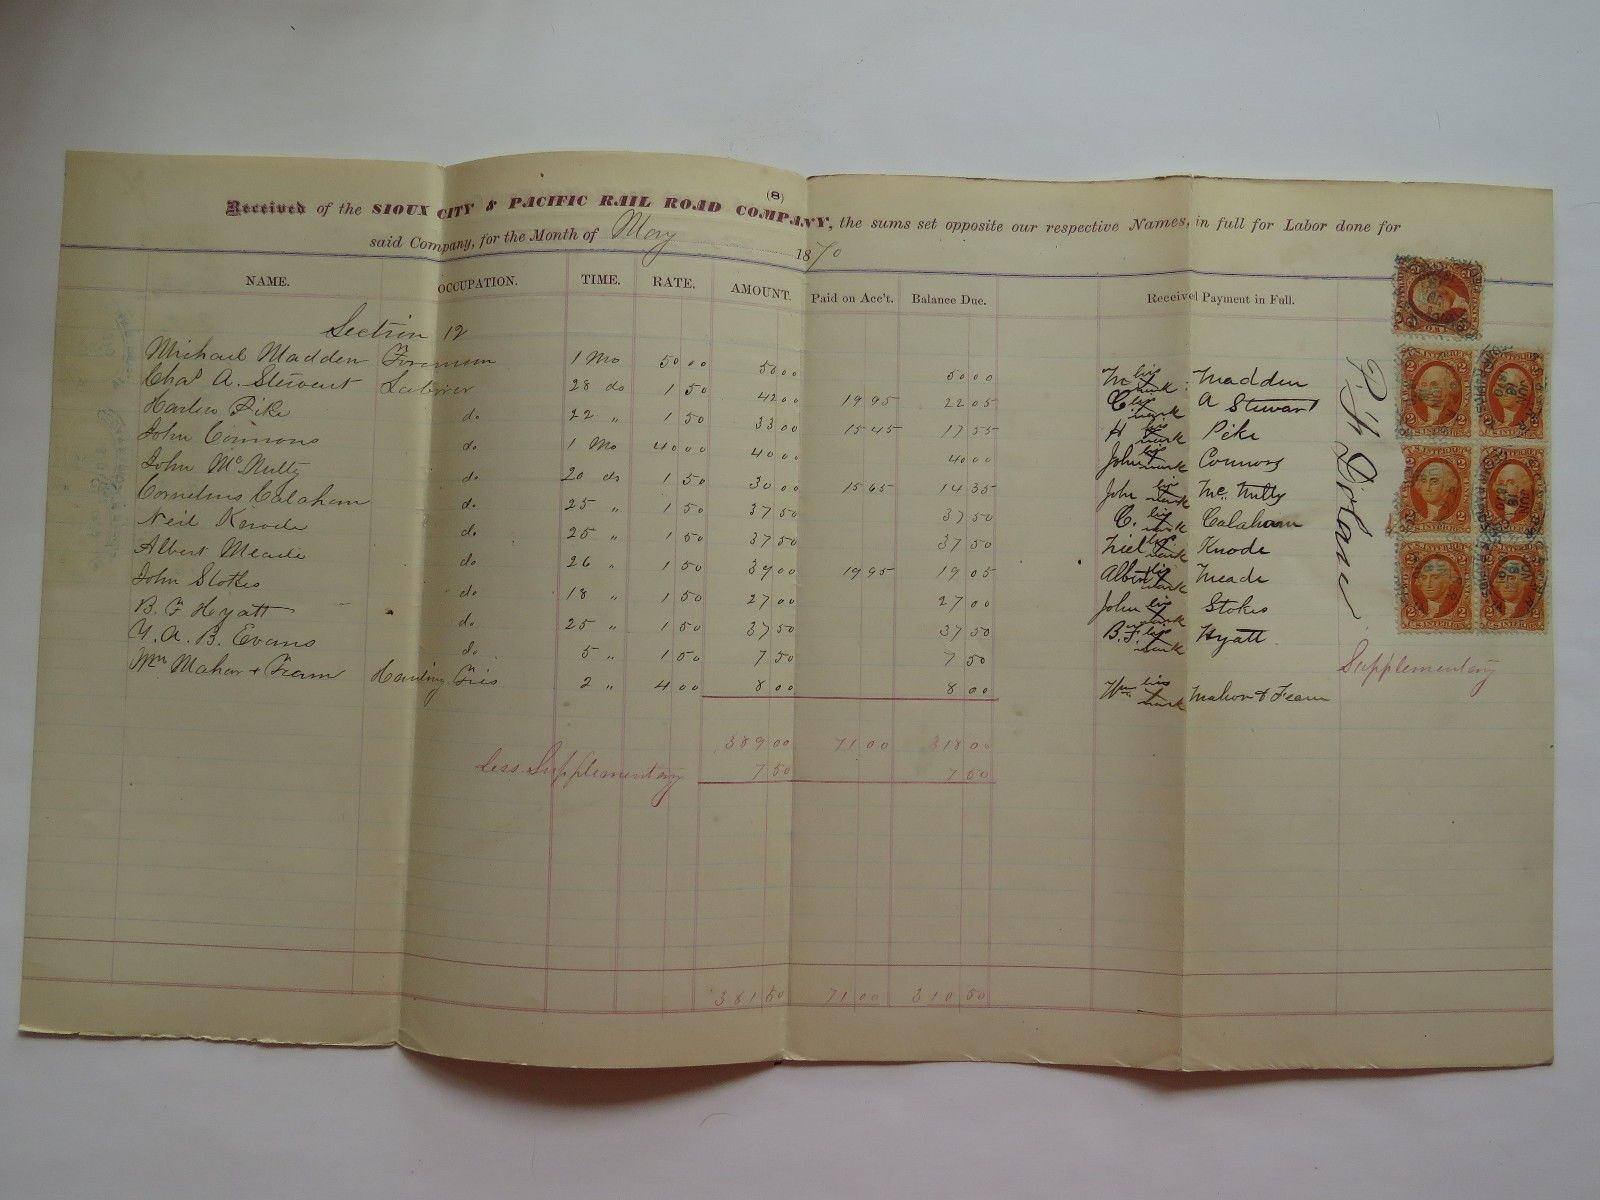 (8)
Received of the SIOUX CITY & PACIFIC RAIL ROAD COMPANY, the sums set opposite our respective Names, in full for Labor done for
said Company, for the Month of May 1870
NAME. OCCUPATION. TIME. RATE. AMOUNT. Paid on Acc't. Balance Due. Received Payment in Full.
Section 12
Michael Madden Foreman 1 Mo 50 00 50 00 50 00 M his mark Madden
Chas A. Stewart Laborer 28 do 1 50 42 00 19 95 22 05 C his mark A Stewart
Pike do 22 " 1 50 33 00 15 45 17 55 H his mark Pike
John Connons do 1 Mo 40 00 40 00 40 00 John his mark Connors
John McNulty do 20 do 1 50 30 00 15 65 14 35 John his mark McNulty
Cornelius Calaham do 25 " 1 50 37 50 37 50 C. his mark Calaham
Neil Knode do 25 " 1 50 37 50 37 50 Niel his mark Knode
Albert Meade do 26 " 1 50 39 00 19 95 19 05 Albert his mark Meade
John Stokes do 18 " 1 50 27 00 27 00 John his mark Stokes
B. F Hyatt do 25 " 1 50 37 50 37 50 B.F. his mark Hyatt
Y. A. B. Evans do 5 " 1 50 7 50 7 50 Supplementary
Wm Mahor & Team Hauling Ties 2 " 4 00 8 00 8 00 Wm his mark Mahor & Team
389 00 71 00 318 00
Less Supplementary 7 50 7 50
381 50 71 00 310 50
P. H Dolan